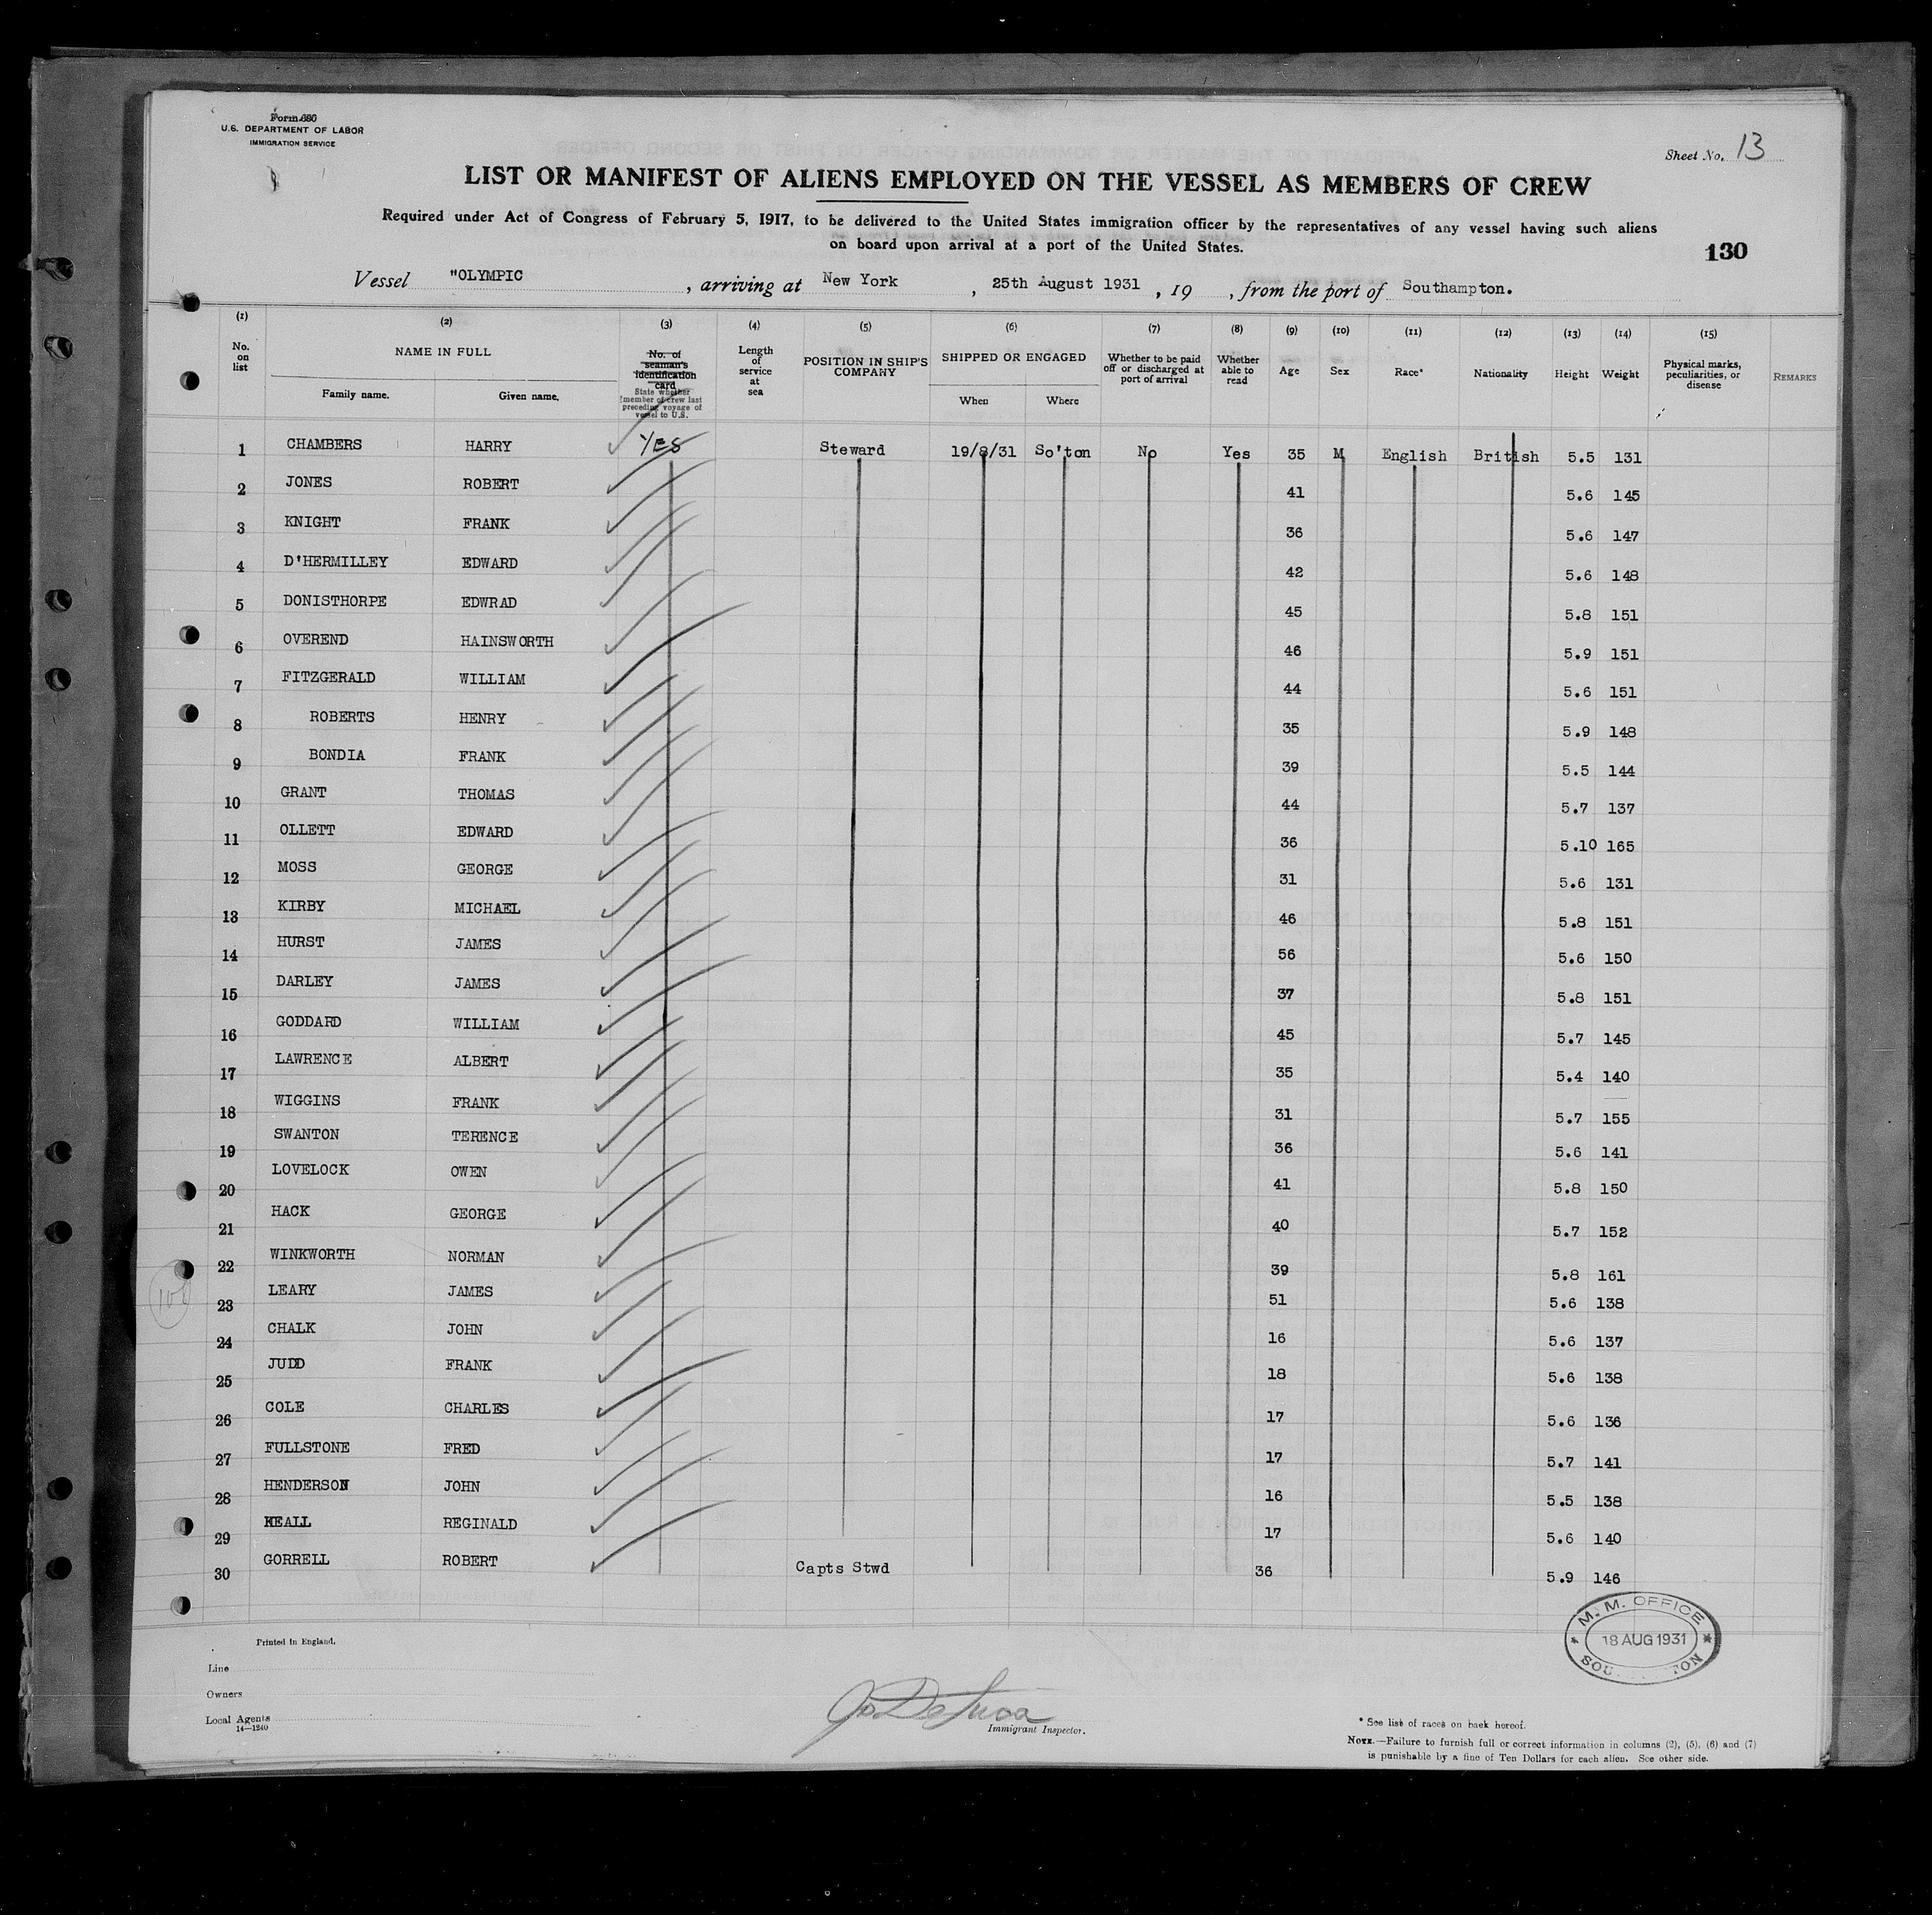 Form 680
U.S. DEPARTMENT OF LABOR
IMMIGRATION SERVICE
Sheet No. 13
LIST OR MANIFEST OF ALIENS EMPLOYED ON THE VESSEL AS MEMBERS OF CREW
Required under Act of Congress of February 5, 1917, to be delivered to the United States immigration officer by the representatives of any vessel having such aliens
on board upon arrival at a port of the United States.
130
Vessel "OLYMPIC , arriving at New York , 25th August 1931 , 19 , from the port of Southampton.
(1) (2) (3) (4) (5) (6) (7) (8) (9) (10) (11) (12) (13) (14) (15)
No. on list
NAME IN FULL
Family name. Given name.
No. of seaman's identification card
State whether member of crew last preceding voyage of vessel to U.S.
Length of service at sea
POSITION IN SHIP'S COMPANY
SHIPPED OR ENGAGED
When Where
Whether to be paid off or discharged at port of arrival
Whether able to read
Age Sex Race* Nationality Height Weight
Physical marks, peculiarities, or disease
REMARKS
1 CHAMBERS HARRY YES Steward 19/8/31 So'ton No Yes 35 M English British 5.5 131
2 JONES ROBERT 41 5.6 145
3 KNIGHT FRANK 36 5.6 147
4 D'HERMILLEY EDWARD 42 5.6 148
5 DONISTHORPE EDWRAD 45 5.8 151
6 OVEREND HAINSWORTH 46 5.9 151
7 FITZGERALD WILLIAM 44 5.6 151
8 ROBERTS HENRY 35 5.9 148
9 BONDIA FRANK 39 5.5 144
10 GRANT THOMAS 44 5.7 137
11 OLLETT EDWARD 36 5.10 165
12 MOSS GEORGE 31 5.6 131
13 KIRBY MICHAEL 46 5.8 151
14 HURST JAMES 56 5.6 150
15 DARLEY JAMES 37 5.8 151
16 GODDARD WILLIAM 45 5.7 145
17 LAWRENCE ALBERT 35 5.4 140
18 WIGGINS FRANK 31 5.7 155
19 SWANTON TERENCE 36 5.6 141
20 LOVELOCK OWEN 41 5.8 150
21 HACK GEORGE 40 5.7 152
22 WINKWORTH NORMAN 39 5.8 161
23 LEARY JAMES 51 5.6 138
24 CHALK JOHN 16 5.6 137
25 JUDD FRANK 18 5.6 138
26 COLE CHARLES 17 5.6 136
27 FULLSTONE FRED 17 5.7 141
28 HENDERSON JOHN 16 5.5 138
29 KEALL REGINALD 17 5.6 140
30 GORRELL ROBERT Capts Stwd 36 5.9 146
M. M. OFFICE
18 AUG 1931
Printed in England.
Line
Owners
Local Agents
14—1240
Immigrant Inspector.
* See list of races on back hereof.
NOTE.—Failure to furnish full or correct information in columns (2), (5), (6) and (7)
is punishable by a fine of Ten Dollars for each alien. See other side.